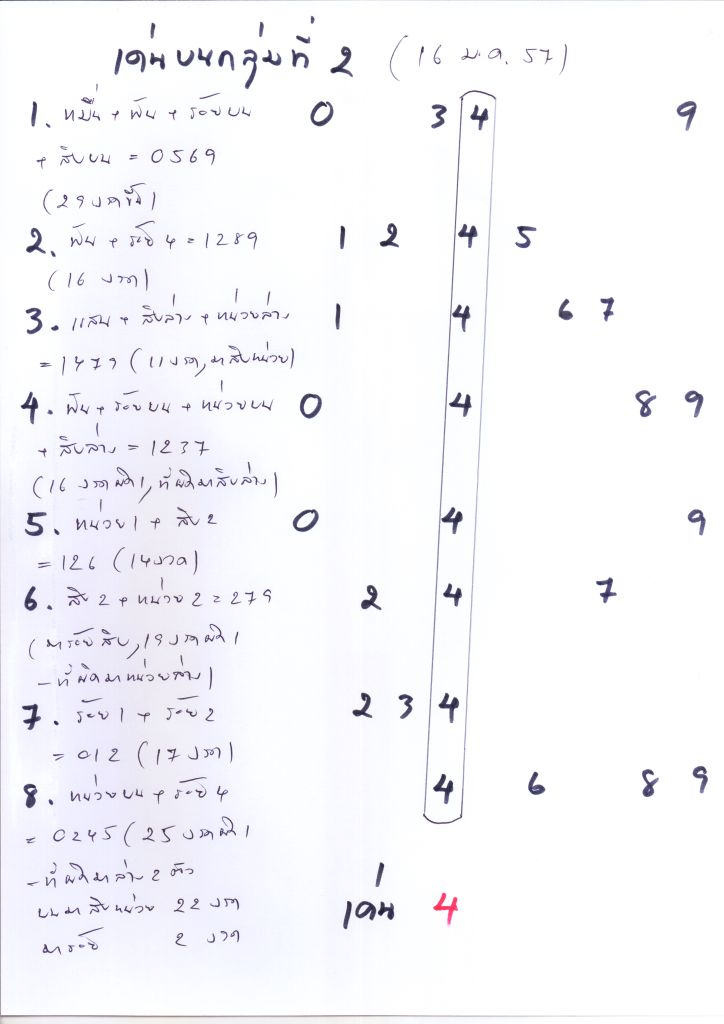 เด่นบนกลุ่มที่ 2 (16 ม.ค. 57)
1. หมื่น + พัน + ร้อยบน 0 3 4 9
+ สิบบน = 0569
(29 งวด
2. พัน + ร้อย 4 = 1289 1 2 4 5
(16 งวด)
3. แสน + สิบล่าง + หน่วยล่าง 1 4 6 7
= 1479 (11 งวด, มาสิบหน่วย)
4. พัน + ร้อยบน + หน่วยบน 0 4 8 9
+ สิบล่าง = 1237
(16 งวดผิด 1, ที่ผิดมาสิบล่าง)
5. หน่วย 1 + สิบ 2 0 4 9
= 126 (14 งวด)
6. สิบ 2 + หน่วย 2 = 279 2 4 7
(มาร้อยสิบ, 19 งวดผิด 1
- ที่ผิดมาหน่วยล่าง)
7. ร้อย 1 + ร้อย 2 2 3 4
= 012 (17 งวด)
8. หน่วยบน + ร้อย 4 4 6 8 9
= 0245 (25 งวดผิด 1
- ที่ผิดมาล่าง 2 ตัว
บนมาสิบหน่วย 22 งวด
เด่น 4
มาร้อย 2 งวด